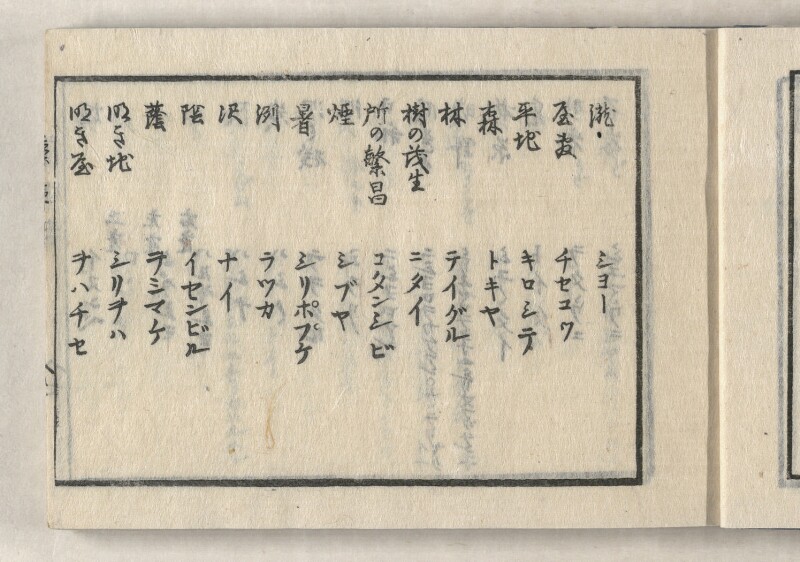 瀧 シヨー
屋敷 チセコツ
平地 キロシテ
森 トキヤ
林 テイグル
樹の茂生 ニタイ
所の繁昌 コタンシビ
煙 シブヤ
暑 シリポプケ
渕 ラツカ
沢 ナイ
陰 イセンビル
蔭 ヲシマケ
明き地 シリヲハ
明き屋 ヲハチセ